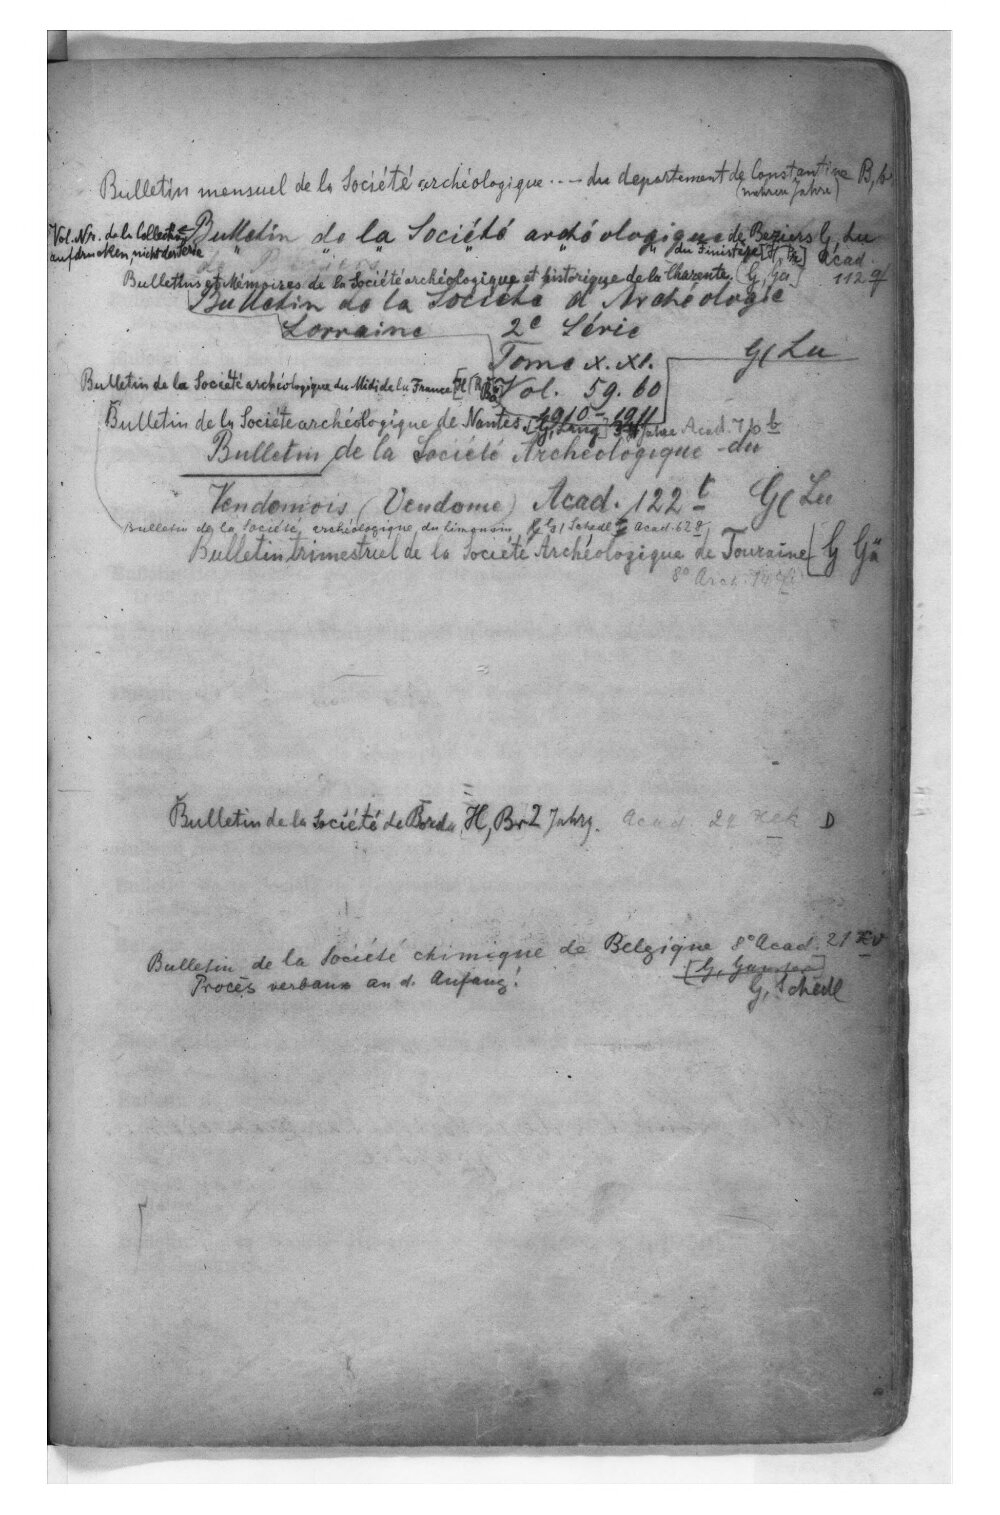 Bulletin mensuel de la Société archéologique ... du departement de Constantine B, b
(mehrere Jahre)
Vol. Nr. de la Collection
aufdrucken, nicht der Serie
Bulletin de la Société archéologique de Beziers G Lu
" " " " " du Finistère [H, Br] Acad.
112 q
Bulletins et Mémoires de la Société archéologique et historique de la Charente. (G, Gä.)
Bulletin de la Société d'Archéologie
Lorraine 2e Série
Tome X. XI. G Lu
Bulletin de la Société archéologique du Midi de la France [H, Br]
Vol. 59. 60
1910-1911
Bulletin de la Société archéologique de Nantes. [G, Lang] Jahre Acad. 76 b
Bulletin de la Société Archéologique du
Vendomois (Vendome) Acad. 122 t G Lu
Bulletin de la Société archéologique du Limousin G, Schedl Acad. 62 g
Bulletin trimestriel de la Société Archéologique de Touraine [G Gä
8° Arch.
Bulletin de la Société de Borda, H, Br 2 Jahrg. Acad. 22 D
Bulletin de la Société chimique de Belgique 8° Acad. 21
Procès verbaux an d. Anfang!
G, Schedl